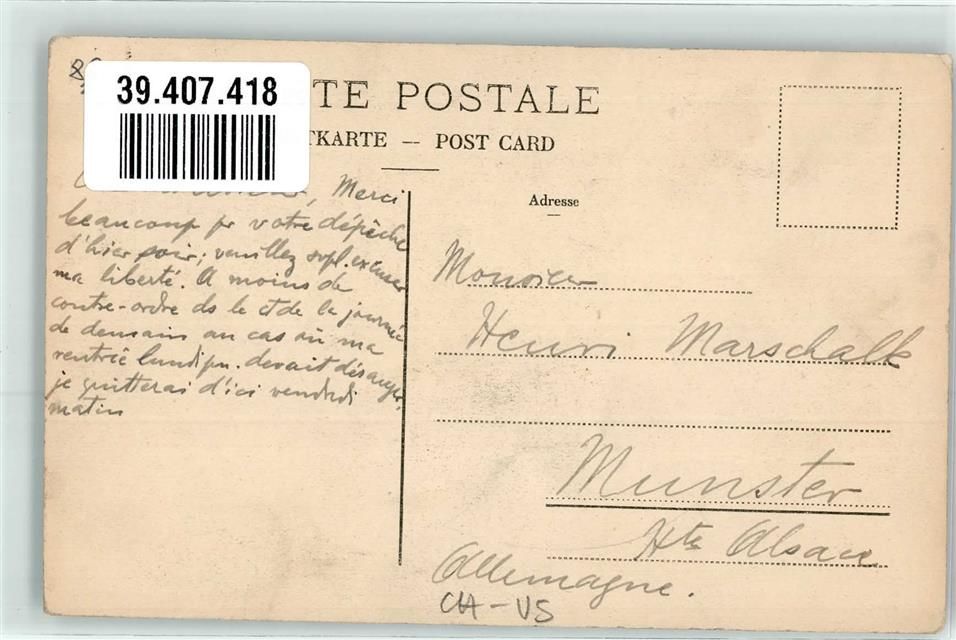 39.407.418
TE POSTALE
TKARTE — POST CARD
Adresse
, Merci
beaucoup pr votre dépêche
d'hier soir; veuillez svpl. excuser
ma liberté. A moins de
contre-ordre ds le ct de la journée
de demain au cas où ma
rentrée lundi devait déranger,
je quitterai d'ici vendredi
matin
Monsieur
Henri Marschall
Munster
Hte Alsace
Allemagne.
CH-VS